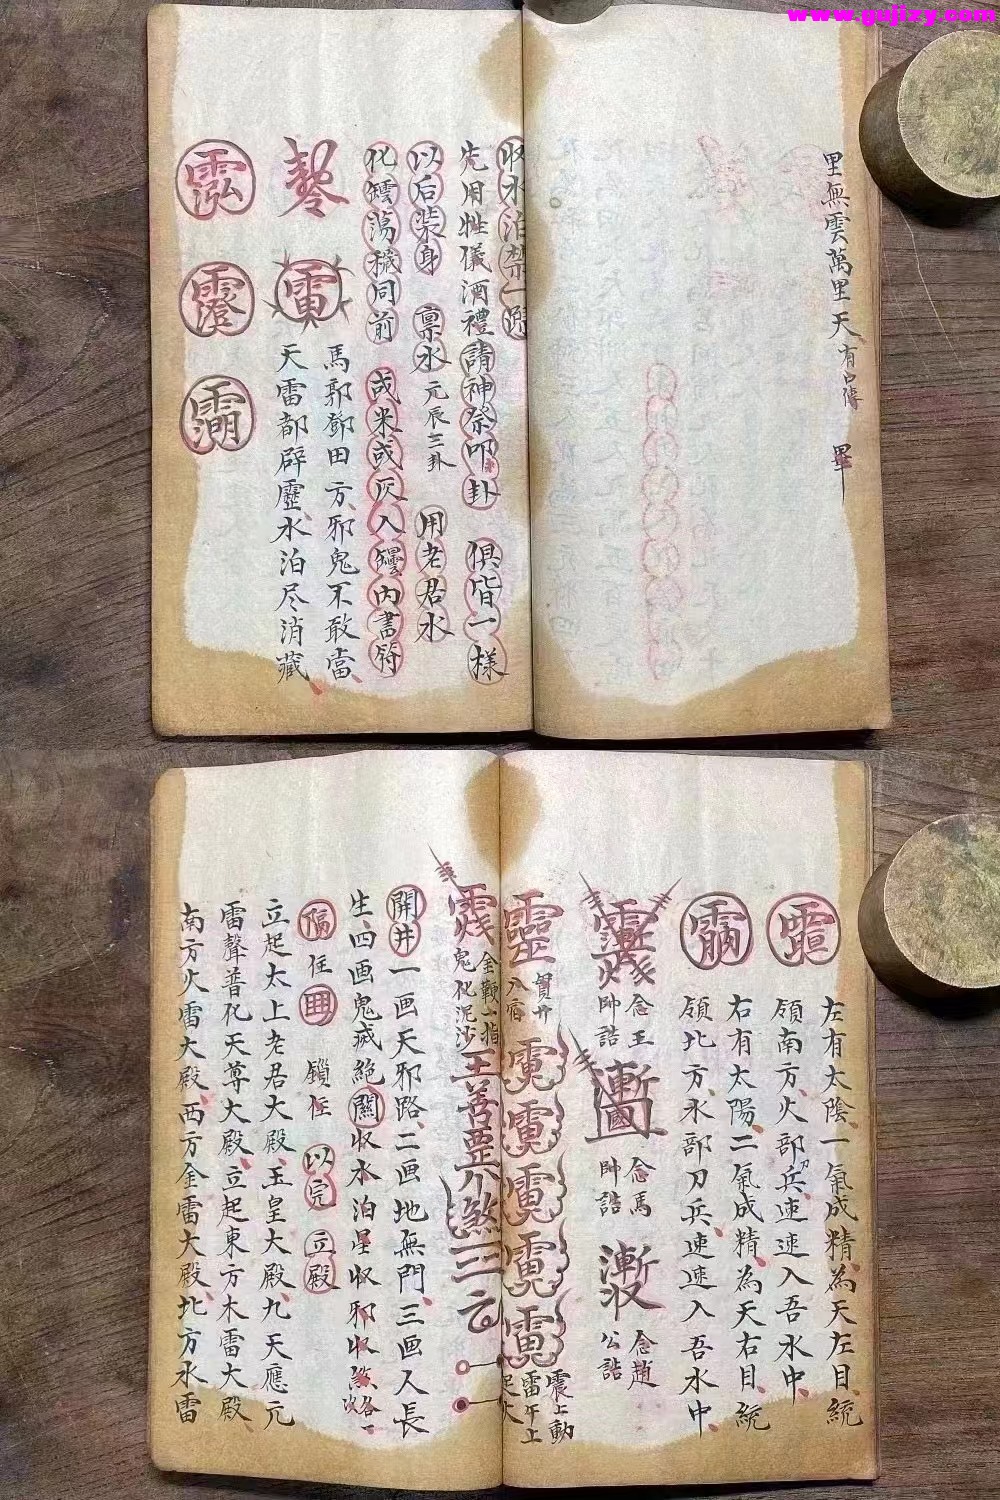 www.gujizy.com
里無雲萬里天有口傳 畢
收水泊禁一段
先用牲儀酒禮請神祭叩卦 俱皆一樣
以后装身 禀水元辰三卦 用老君水
化罈蕩穢同前 或米或灰入罈内書符
馬郭鄧田方、邪鬼不敢當、
天雷都辟靂、水泊尽消藏、
左有太陰、一氣成精、為天左目、統
領南方、火部刀兵、速速入吾水中、
右有太陽、二氣成精、為天右目、統
領北方、水部刀兵、速速入吾水中、
念王帥誥
念馬帥誥
念趙公誥
靈
貫井入宿
震上動
雷午上
金鞭一指
鬼化泥沙
王善
煞
開井一画天邪路、二画地無門、三画人長
生、四画鬼滅絶 關收水泊星收邪收煞各一改
隔住 鎖住 以完 立殿
立起太上老君大殿、玉皇大殿、九天應元
雷聲普化天尊大殿、立起東方木雷大殿
南方火雷大殿、西方金雷大殿、北方水雷